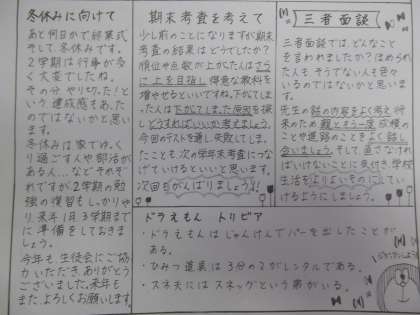 冬休みに向けて
あと何日かで終業式
そして冬休みです。
2学期は行事が多
く大変でしたね。
その分やり切った!と
いう達成感もあった
のではないかと思い
ます。
冬休みは家でゆっく
り過ごす人や部活が
ある人…などそれぞ
れですが2学期の勉
強の復習もしっかりや
り来年1月3学期まで
に準備をしておきま
しょう。
今年も生徒会にご協
力いただきありがとう
ございました。来年も
またよろしくお願いします。
期末考査を考えて
少し前のことになりますが期末
考査の結果はどうでしたか?
順位や点数が上がた人はさら
に上を目指し得意な教科を
増やせるといいですね。下がてしま
った人は下がてしまった原因を探
しどうすればいいか考えましょう。
今回のテストを通し失敗してしまっ
たことも次の学年末考査につな
げていけるといいと思います。
次回もがんばりましょう!!
三者面談
三者面談ではどんなこと
を言われましたか?ほめられ
た人もそうでない人も色々
いるのではないかと思いま
す。
先生の話の内容をよく考え将
来のため親ともう一度成績の
ことや進路のことをよく話し
合いましょう。そして直さなけれ
ばいけないことに気付き学校
生活をよりよいものにしてい
けるようにしましょう。
ドラえもん トリビア
・ドラえもんはじゃんけんでパーを出したことが
ある。
・ひみつ道具は3分の2がレンタルである。
・スネ夫にはスネツグという弟がいる。